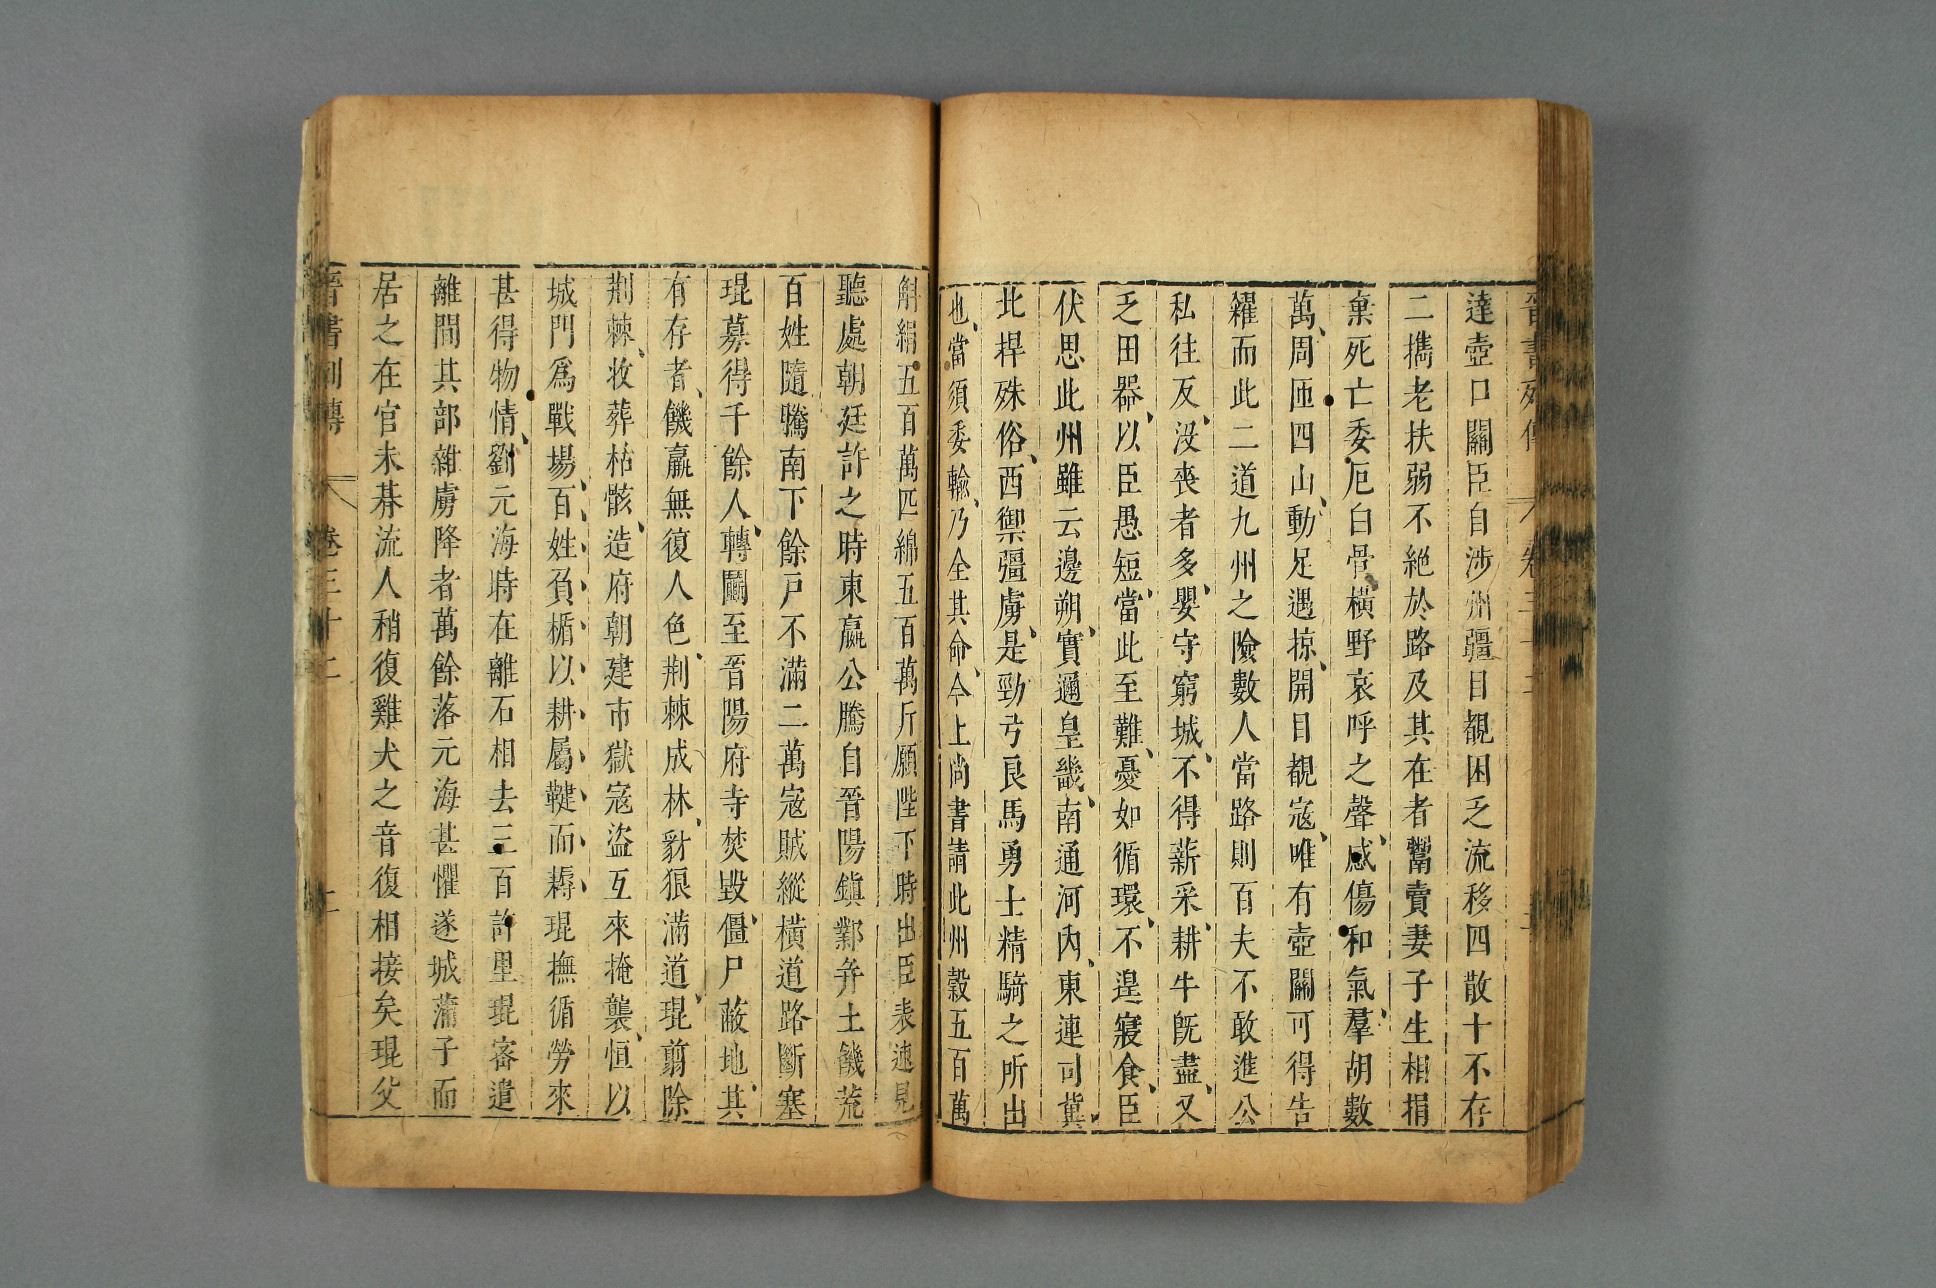 晉書列傳 卷三十二
達壺口關臣自涉州疆目覩困乏流移四散十不存
二攜老扶弱不絕於路及其在者鬻賣妻子生相捐
棄死亡委厄白骨橫野哀呼之聲感傷和氣羣胡數
萬周匝四山動足遇掠開目覩寇唯有壺關可得告
糴而此二道九州之險數人當路則百夫不敢進公
私往反沒喪者多嬰守窮城不得薪采耕牛旣盡又
乏田器以臣愚短當此至難憂如循環不遑寢食臣
伏思此州雖云邊朔實邇皇畿南通河內東連司冀
北捍殊俗西禦彊虜是勁弓良馬勇士精騎之所出
也當須委輸乃全其命今上尚書請此州穀五百萬
斛絹五百萬匹綿五百萬斤願陛下時出臣表速見
聽處朝廷許之時東嬴公騰自晉陽鎮鄴并土饑荒
百姓隨騰南下餘戶不滿二萬寇賊縱橫道路斷塞
琨募得千餘人轉鬭至晉陽府寺焚毀僵尸蔽地其
有存者饑羸無復人色荆棘成林豺狼滿道琨翦除
荆棘收葬枯骸造府朝建市獄寇盜互來掩襲恒以
城門爲戰場百姓負楯以耕屬鞬而耨琨撫循勞來
甚得物情劉元海時在離石相去三百許里琨密遣
離間其部雜虜降者萬餘落元海甚懼遂城蒲子而
居之在官未朞流人稍復雞犬之音復相接矣琨父
晉書列傳 卷三十二